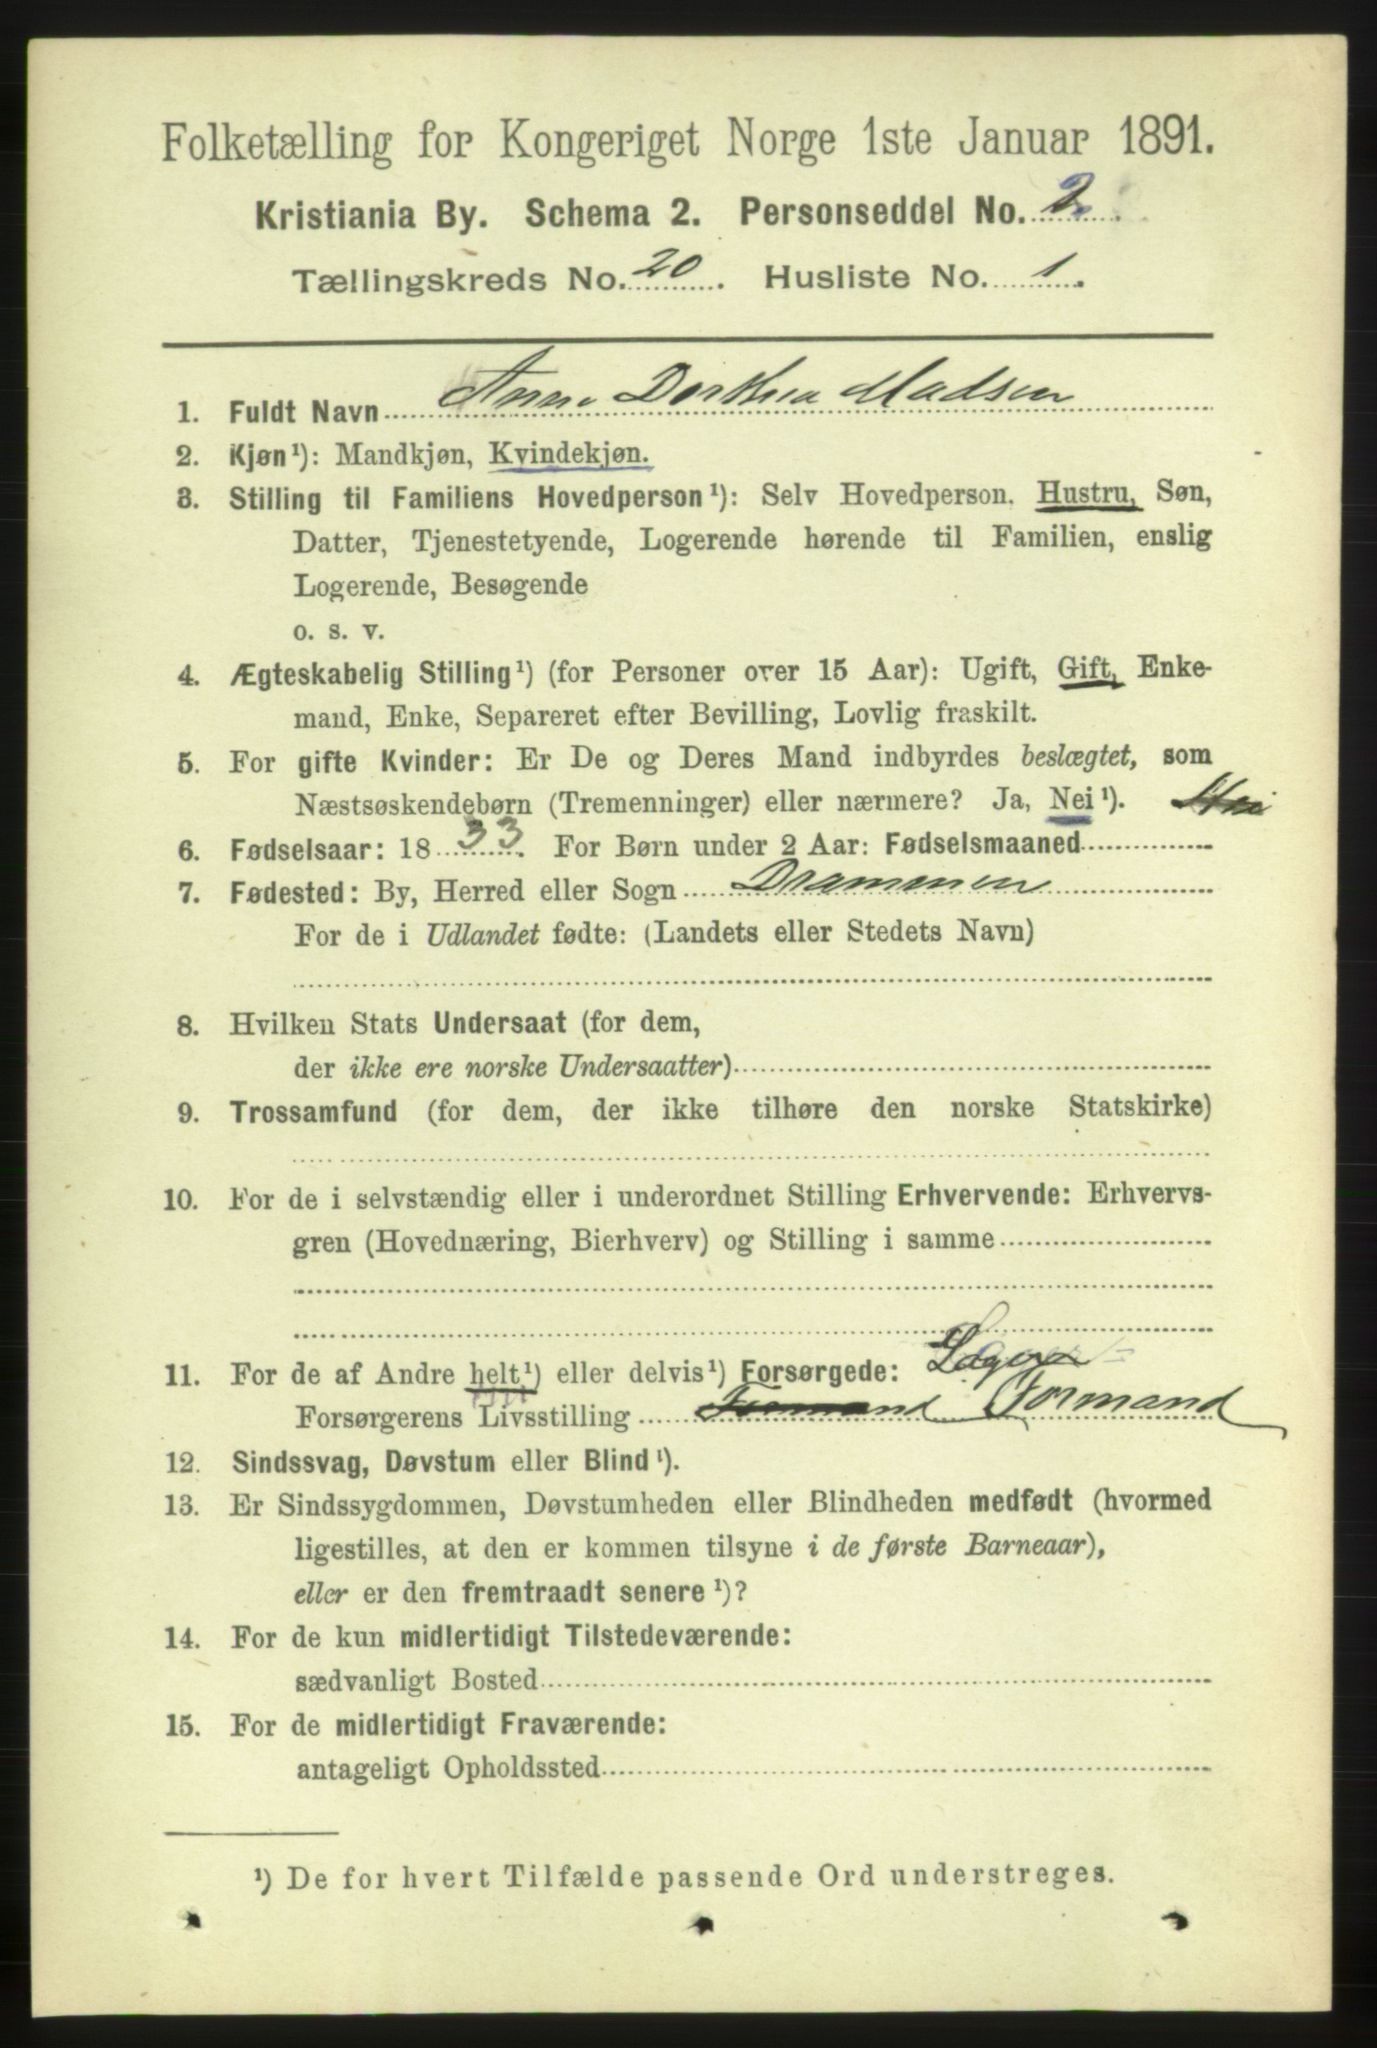 Folketælling for Kongeriget Norge 1ste Januar 1891.
Kristiania By. Schema 2. Personseddel No. 2
Tællingskreds No. 20. Husliste No. 1.
1. Fuldt Navn Anne Dorthea Madsen
2. Kjøn¹): Mandkjøn, Kvindekjøn.
3. Stilling til Familiens Hovedperson¹): Selv Hovedperson. Hustru, Søn,
Datter, Tjenestetyende, Logerende hørende til Familien, enslig
Logerende, Besøgende
o. s. v.
4. Ægteskabelig Stilling¹) (for Personer over 15 Aar): Ugift, Gift, Enke-
mand, Enke, Separeret efter Bevilling, Lovlig fraskilt.
5. For gifte Kvinder: Er De og Deres Mand indbyrdes beslægtet, som
Næstsøskendebørn (Tremenninger) eller nærmere? Ja, Nei¹).
6. Fødselsaar: 1833. For Børn under 2 Aar: Fødselsmaaned
7. Fødested: By, Herred eller Sogn Drammen
For de i Udlandet fødte: (Landets eller Stedets Navn)
8. Hvilken Stats Undersaat (for dem,
der ikke ere norske Undersaatter)
9. Trossamfund (for dem, der ikke tilhøre den norske Statskirke)
10. For de i selvstændig eller i underordnet Stilling Erhvervende: Erhvervs-
gren (Hovednæring, Bierhverv) og Stilling i samme
11. For de af Andre helt¹) eller delvis¹) Forsørgede:
Forsørgerens Livsstilling Formand Formand
12. Sindssvag, Døvstum eller Blind¹).
13. Er Sindssygdommen, Døvstumheden eller Blindheden medfødt (hvormed
ligestilles, at den er kommen tilsyne i de første Barneaar),
eller er den fremtraadt senere¹)?
14. For de kun midlertidigt Tilstedeværende:
sædvanligt Bosted
15. For de midlertidigt Fraværende:
antageligt Opholdssted
¹) De for hvert Tilfælde passende Ord understreges.